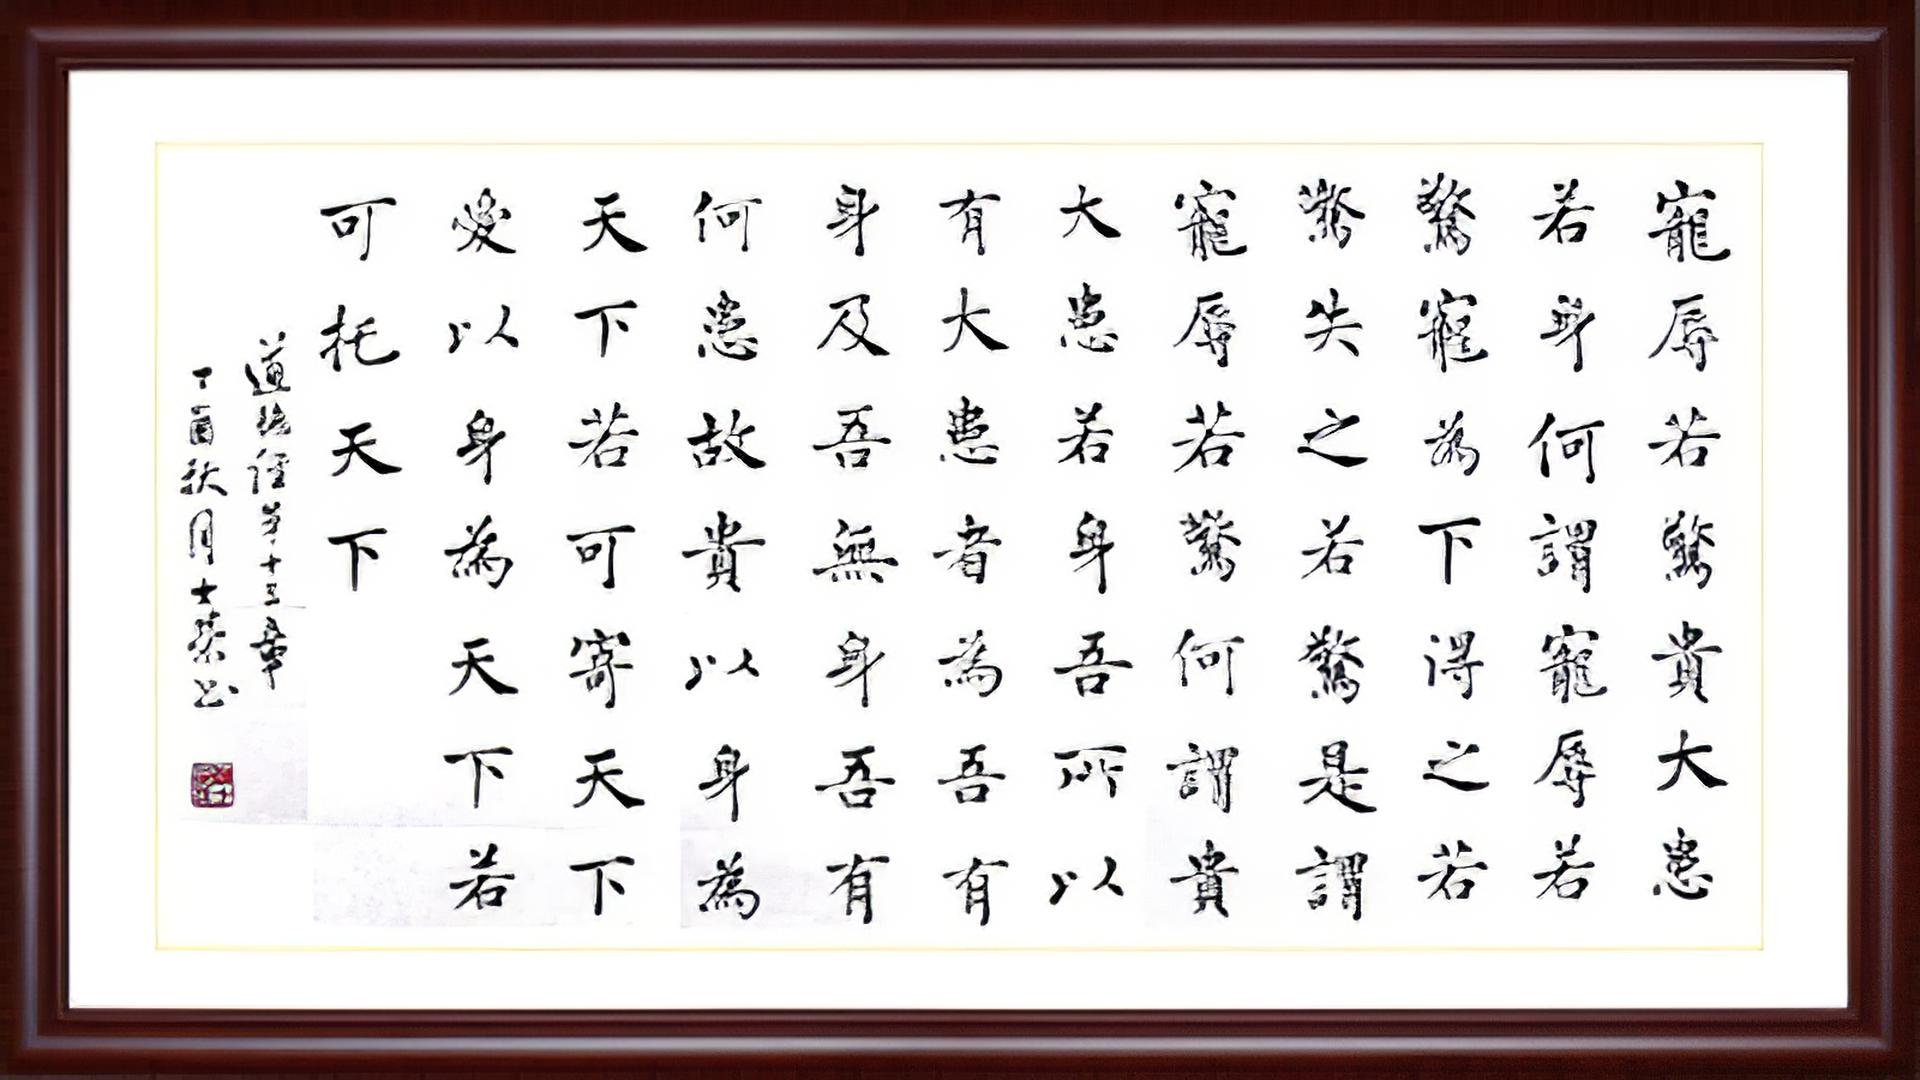 寵辱若驚貴大患
若身何謂寵辱若
驚寵為下得之若
驚失之若驚是謂
寵辱若驚何謂貴
大患若身吾所以
有大患者為吾有
身及吾無身吾有
何患故貴以身為
天下若可寄天下
愛以身為天下若
可托天下
道德經第十三章
丁酉秋月士榮書